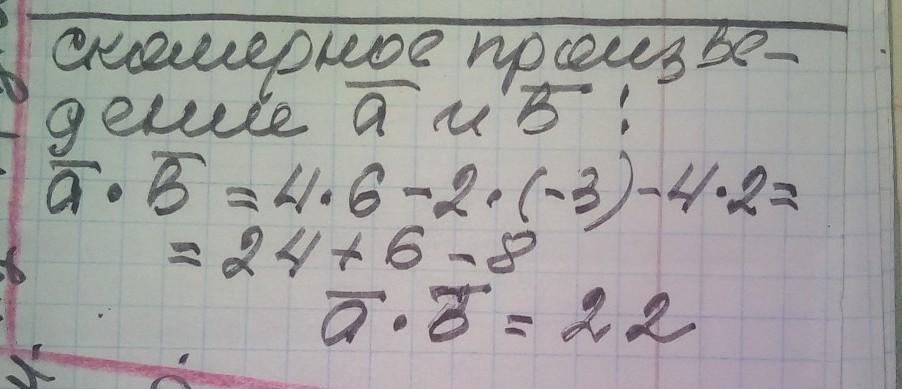 скалярное произве-
дение a̅ и b̅ :
a̅ · b̅ = 4·6 - 2·(-3) - 4·2 =
= 24 + 6 - 8
a̅ · b̅ = 22